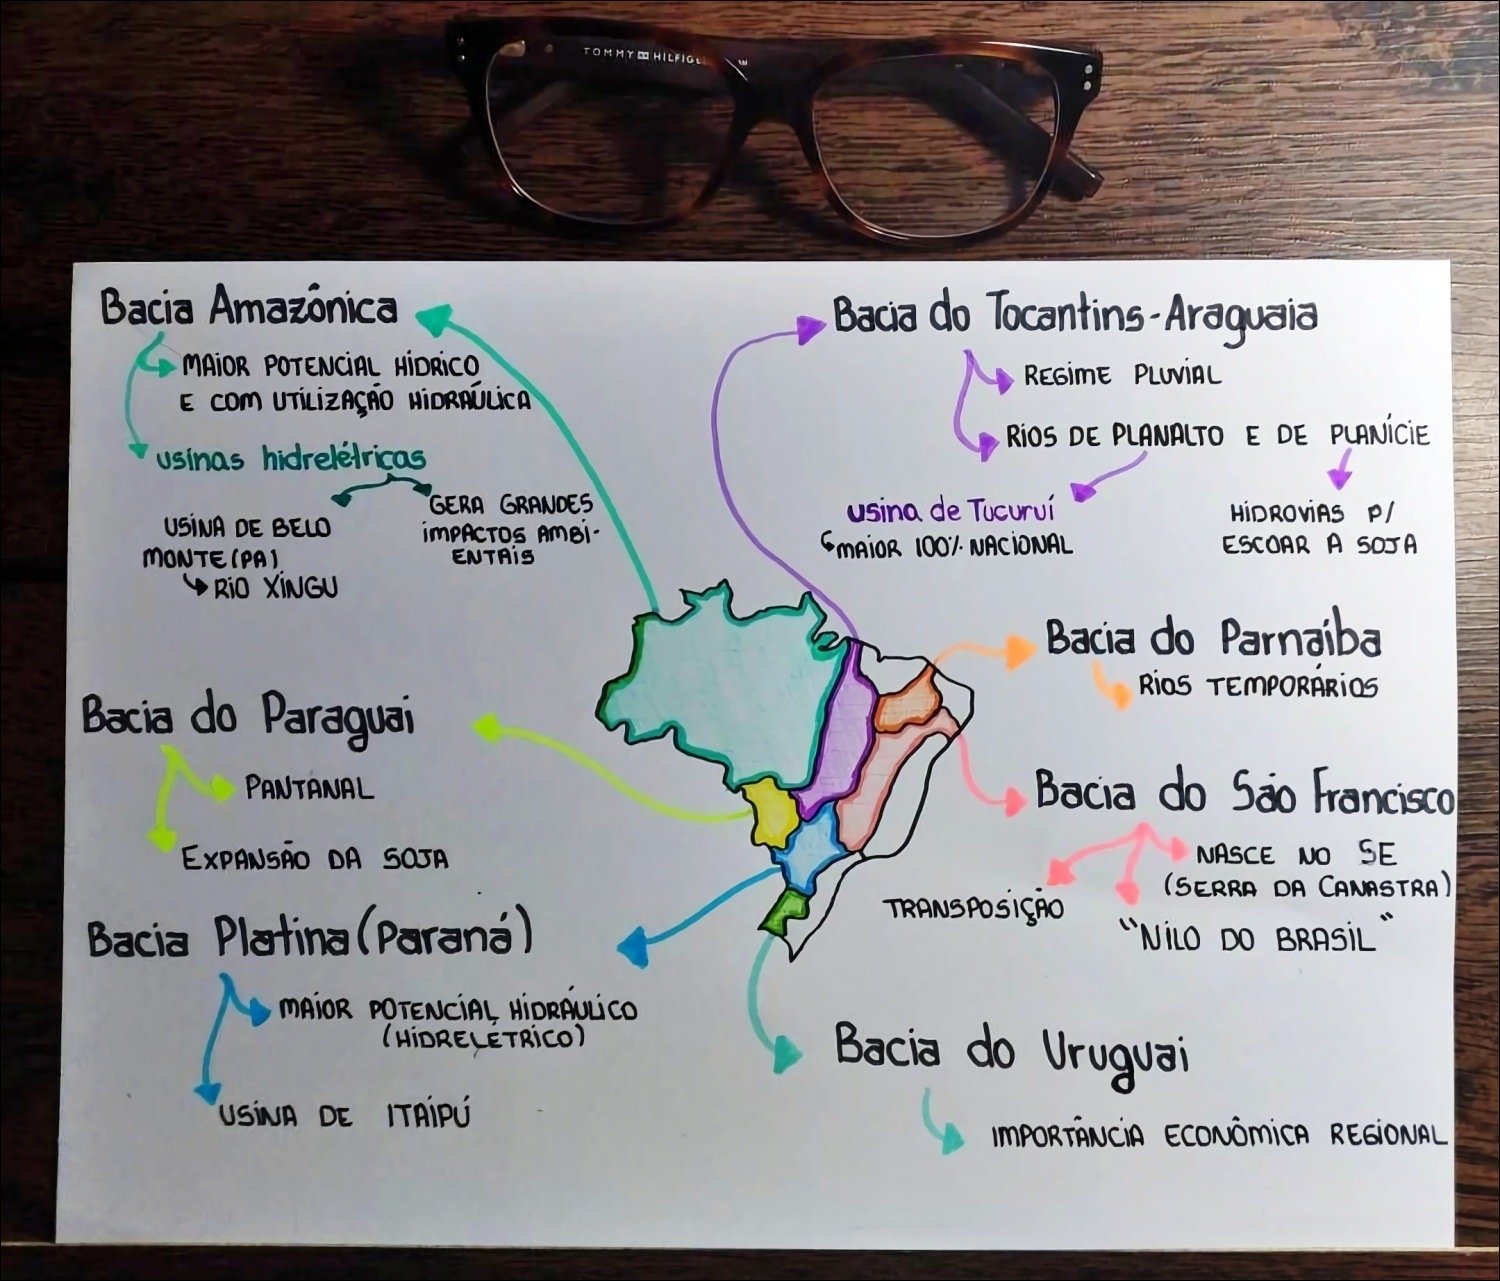 TOMMY HILFIGE
Bacia Amazônica
MAIOR POTENCIAL HÍDRICO
E COM UTILIZAÇÃO HIDRÁULICA
usinas hidrelétricas
USINA DE BELO
MONTE (PA)
RIO XINGU
GERA GRANDES
IMPACTOS AMBI-
ENTAIS
Bacia do Tocantins-Araguaia
REGIME PLUVIAL
RIOS DE PLANALTO E DE PLANÍCIE
usina de Tucuruí
MAIOR 100% NACIONAL
HIDROVIAS P/
ESCOAR A SOJA
Bacia do Parnaíba
RIOS TEMPORÁRIOS
Bacia do Paraguai
PANTANAL
EXPANSÃO DA SOJA
Bacia do São Francisco
NASCE NO SE
(SERRA DA CANASTRA)
TRANSPOSIÇÃO
"NILO DO BRASIL"
Bacia Platina (Paraná)
MAIOR POTENCIAL HIDRÁULICO
(HIDRELÉTRICO)
USINA DE ITAIPÚ
Bacia do Uruguai
IMPORTÂNCIA ECONÔMICA REGIONAL